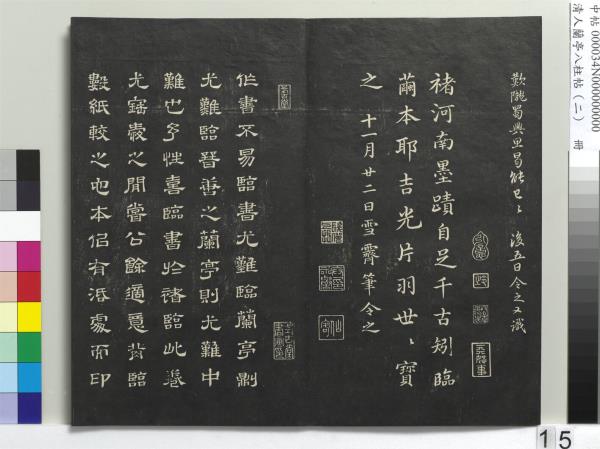 中帖 000034N000000000
清人蘭亭八柱帖(二) 冊
歎隴蜀興思曷能已〻 後五日令之又識
褚河南墨蹟自足千古矧臨
繭本耶吉光片羽世〻寶
之 十一月廿二日雪霽筆令之
作書不易臨書尤難臨蘭亭則
尤難臨最善之蘭亭則尤難中
難也予性喜臨書於諸臨此卷
尤寤寐之間嘗公餘適意背臨
數紙較之他本侶有添處而印
15